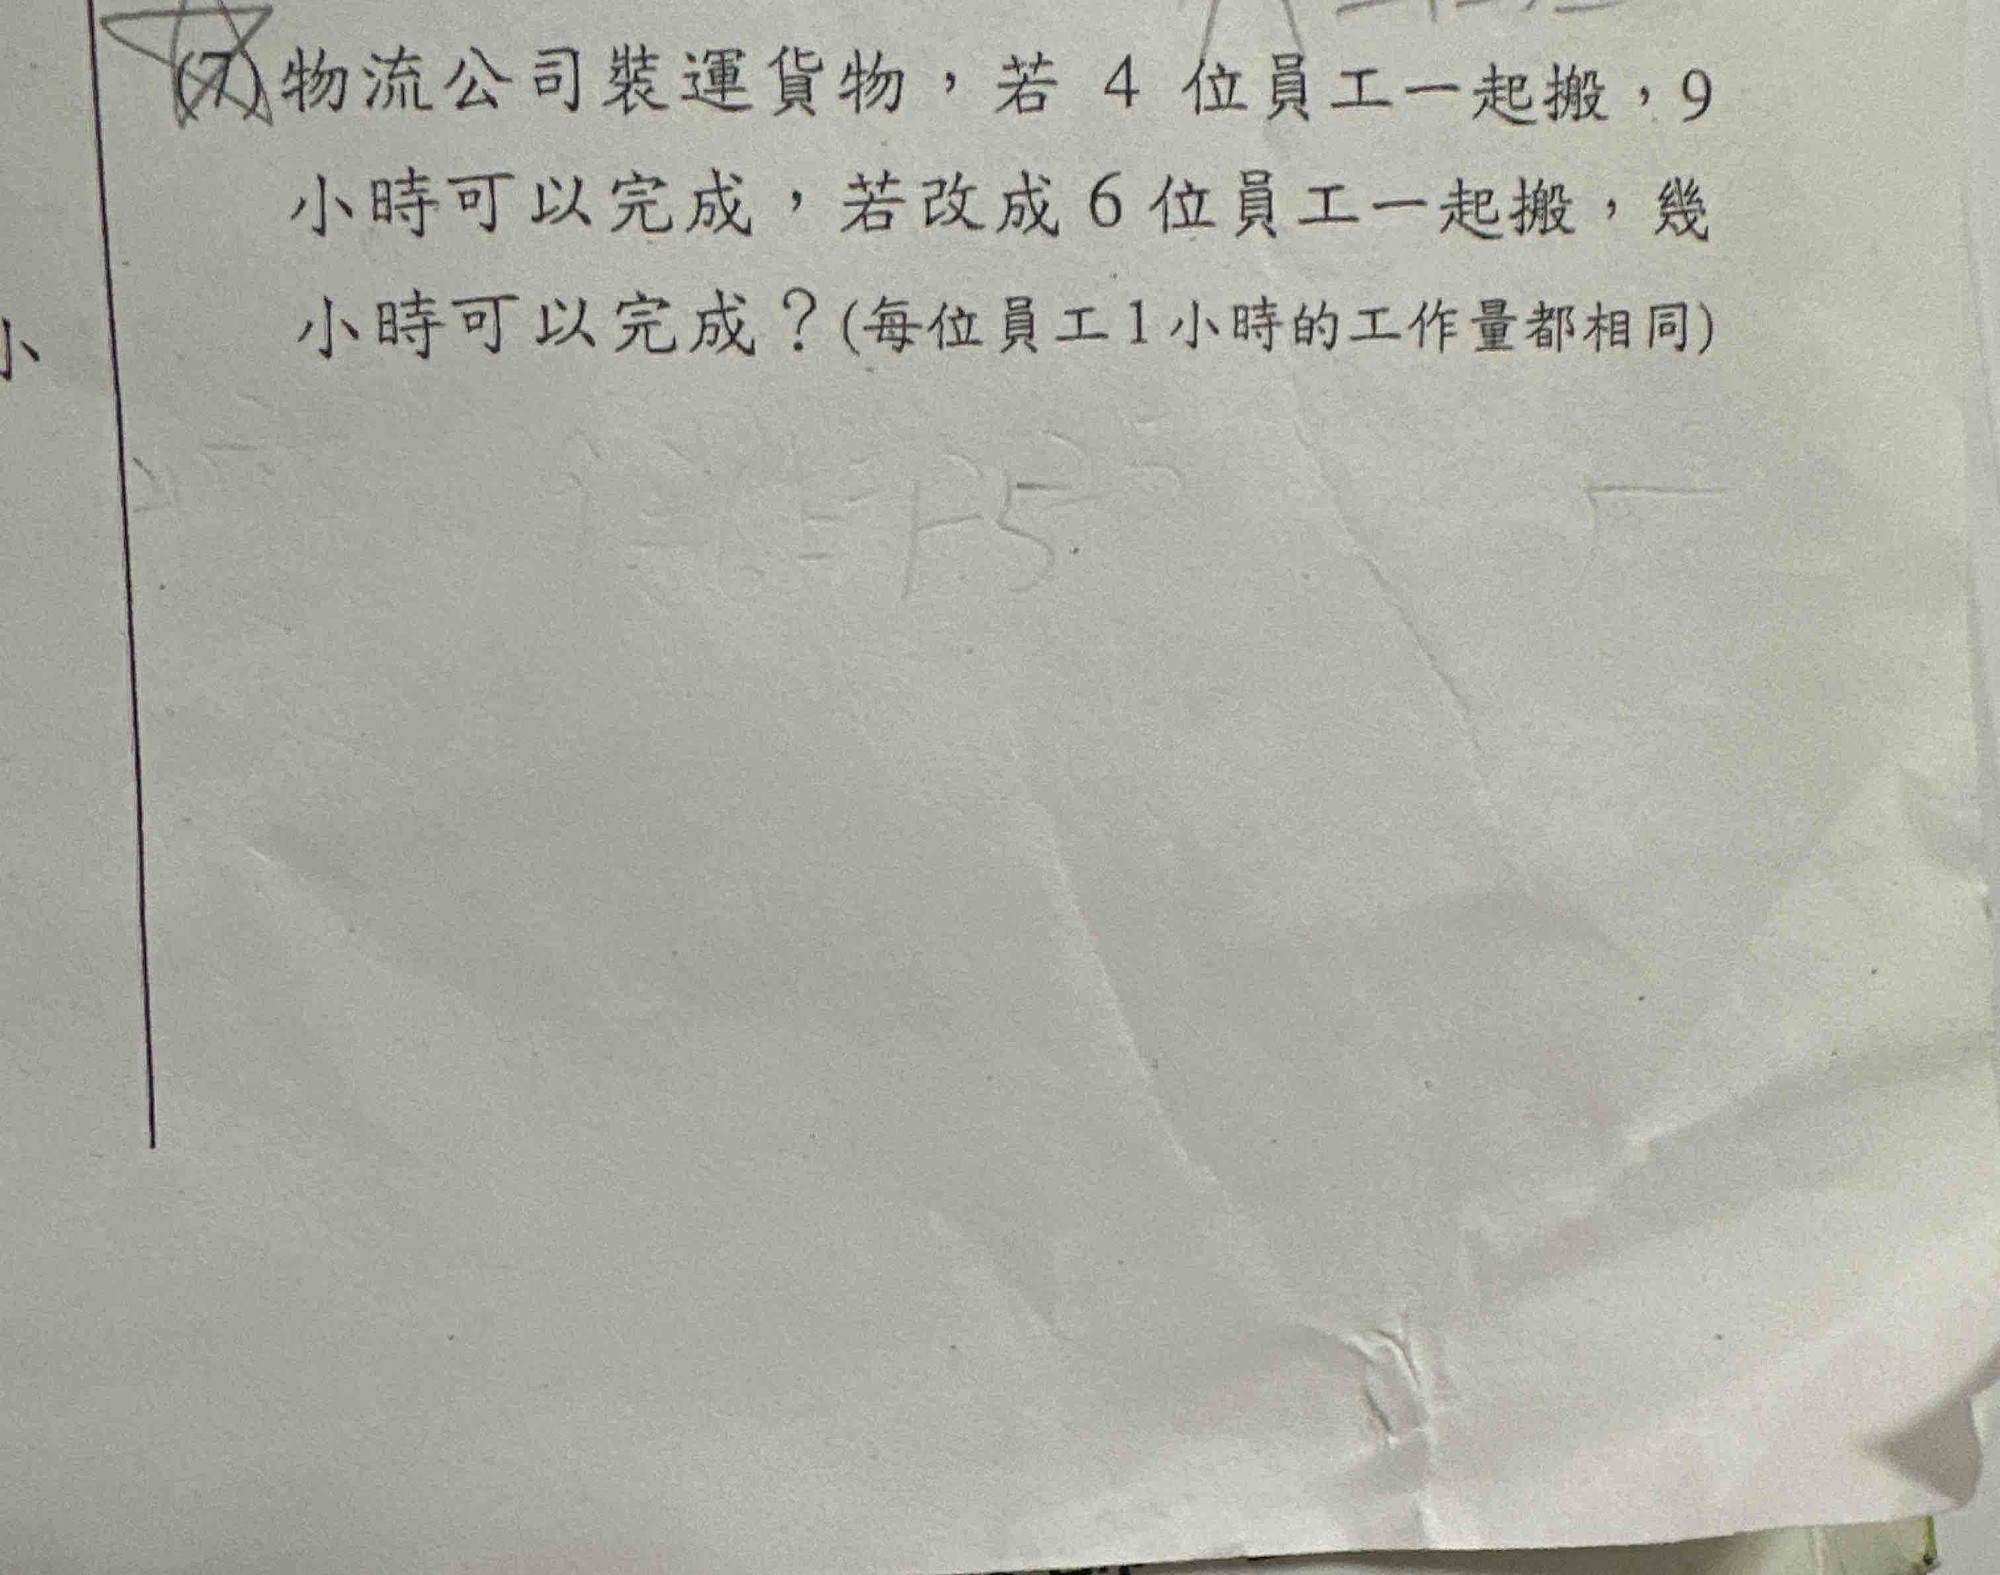 (7)物流公司裝運貨物,若 4 位員工一起搬,9
小時可以完成,若改成 6 位員工一起搬,幾
小時可以完成?(每位員工1小時的工作量都相同)
小